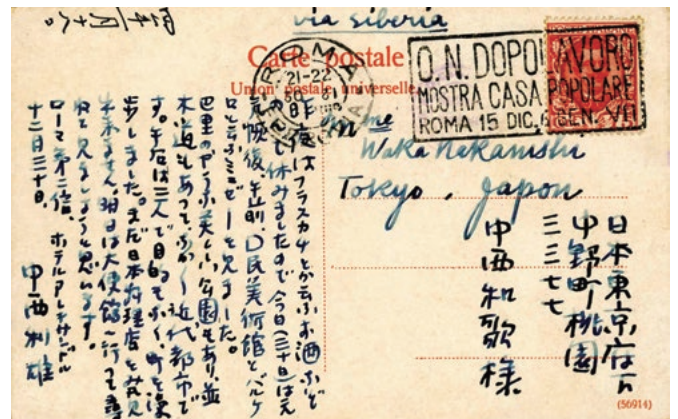 via Siberia
Carte postale
Union postale universelle
ROMA
21-22
O.N. DOPOLAVORO
MOSTRA CASA POPOLARE
ROMA 15 DIC. 6 GEN. VII
Mme
Waka Nakanishi
Tokyo, Japon
日本東京府下
中野町桃園
三三七七
中西和歌様
昨夜はフラスカチとか云ふお酒など
休みましたので今日(三十日)は元
気快復、午前、口民美術館とバルケ
ロと云ふミュゼーを見ました。
巴里のやうな美しい公園もあり、並
木道もあって
近代都市で
す。午后は三人で目的もなく町を漫
歩しました。まだ日本料理店を見
出来ません。明日は大使館へ行って尋
ねて見ましょうと思います。
ローマ
ホテル
十二月三十日。
中西利雄
(56914)